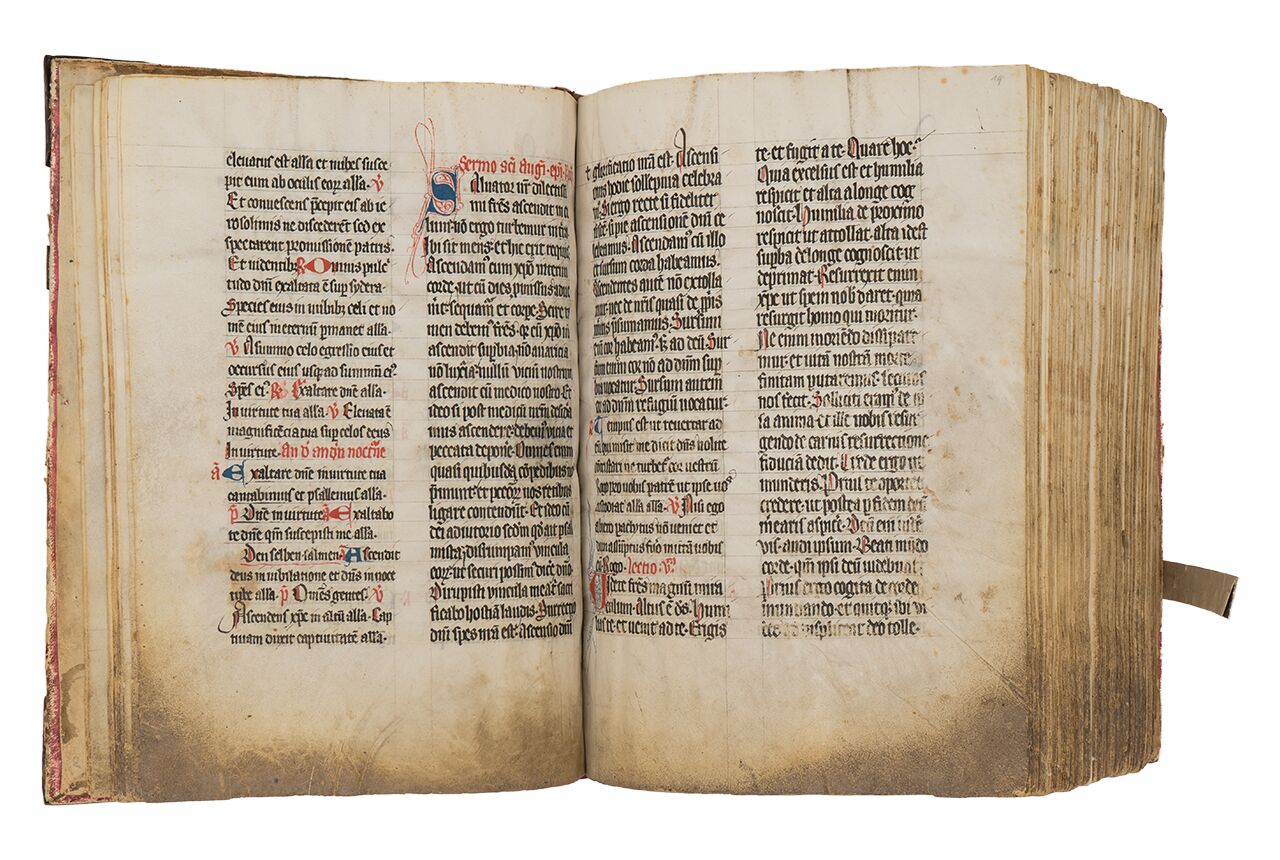 elevatus est alla et nubes susce
pit eum ab oculis eorum alla. V
Et convescens precepit eis ab ie
rosolimis ne discederent sed ex
spectarent promissionē patris.
Et videntibz R Omnis pulc
tudo dni exaltata ē sup sydera.
Species eius in nubibz celi et no
mē eius in eternū pmanet alla.
V A summo celo egressio eius et
occursus eius usqz ad summū ei9
Spēs ei. R Exaltare dnē alla.
In virtute tua alla. V Elevata ē
magnificēcia tua sup celos deus
In virtute. An d andn nocturne
a Exaltare dnē in virtute tua
cantabimus et psallemus alla.
p Dnē in virtute a Exaltabo
te dnē qm suscepisti me alla.
Den selben salmen a Ascendit
deus in iubilatione et dns in voce
tube alla. p Omes gentes. V
Ascendens xpc in altū alla. Cap
tivam duxit captivitatē alla.
Sermo sci Augi epi
Salvator nr dilectissi
mi frēs ascendit in ce
lum. nō ergo turbemur in terra
Ibi sit mens. et hic erit requies
Ascendam9 cum xpo interim
corde. ut cū dies pmissus adve
nit. sequam et corpe. Scire
men debem9 frēs. qz cū xpo nō
ascendit supbia. nō avaricia
nō luxuria. nullū viciū nostrum
ascendit cū medico nostro. Et
ideo si post medicū nrm deside
ramus ascendere. debem9 vicia et
peccata deponē. Omnes enim
quasi quibusdā cōpedibus nos
pmunt. et peccoz nos retibus
ligare contendūt. Et ideo cū
dei adiutorio scdm qd ait psal
mista. disrumpam9 vincula
eorz. ut securi possim9 dicē dno
Dirupisti vincula mea. tibi sac
ficabo hostiā laudis. Surrectio
dni spes nra est. Ascensio dni
glorificatio nra est. Ascensi
onis hodie sollepnia celebra
m9. Si ergo recte si fideliter
si pie ascensionē dni ce
lebramus. Ascendam9 cū illo
et sursum corda habeamus.
Ascendentes autē nō extolla
mur. nec de nris quasi de ppriis
meritis psumamus. Sursum
eni cor habeam9. sz ad deū. Sur
sum enim cor nō ad dnm supbia
vocatur. Sursum autem
cor ad dnm refugiū vocatur.
Tempus est ut revertar ad
eū qui misit me dicit dns nolite
contristari ne turbet cor vestrū
Rogo pro vobis patrē ut ipse vos
custodiat alla alla. V Nisi ego
abiero paclytus nō veniet et
dum assumptus fuero mittā vobis
eū. Rogo. lectio V
Videte frēs magnū mira
culum. Altus ē ds. Humi
lias te et venit ad te. Erigis
te. et fugit a te. Quare hoc.
Quia excelsus est et humilia
respicit et alta a longe cog
noscit. Humilia de proximo
respicit ut attollat. alta id est
supba de longe cognoscit ut
deprimat. Resurrexit enim
xpc ut spem nob daret. quia
resurgit homo qui moritur.
Ne enim moriēdo dispare
mur. et vitā nostrā morte
finitam putaremus. securos
nos fecit. Solliciti eram9 de ip
sa anima. et ille nobis resur
gendo de carnis resurrectione
fiduciā dedit. Crede ergo ut
munderis. Prius te oportet
credere. ut postea p fidem deū
mearis aspicē. Deū eni vidē
vis. audi ipsum. Beati mūdo
corde. qm ipsi deū videbūt.
Prius ergo cogita de corde
mundando. et quicqz ibi vi
des qd displiceat deo tolle.
19